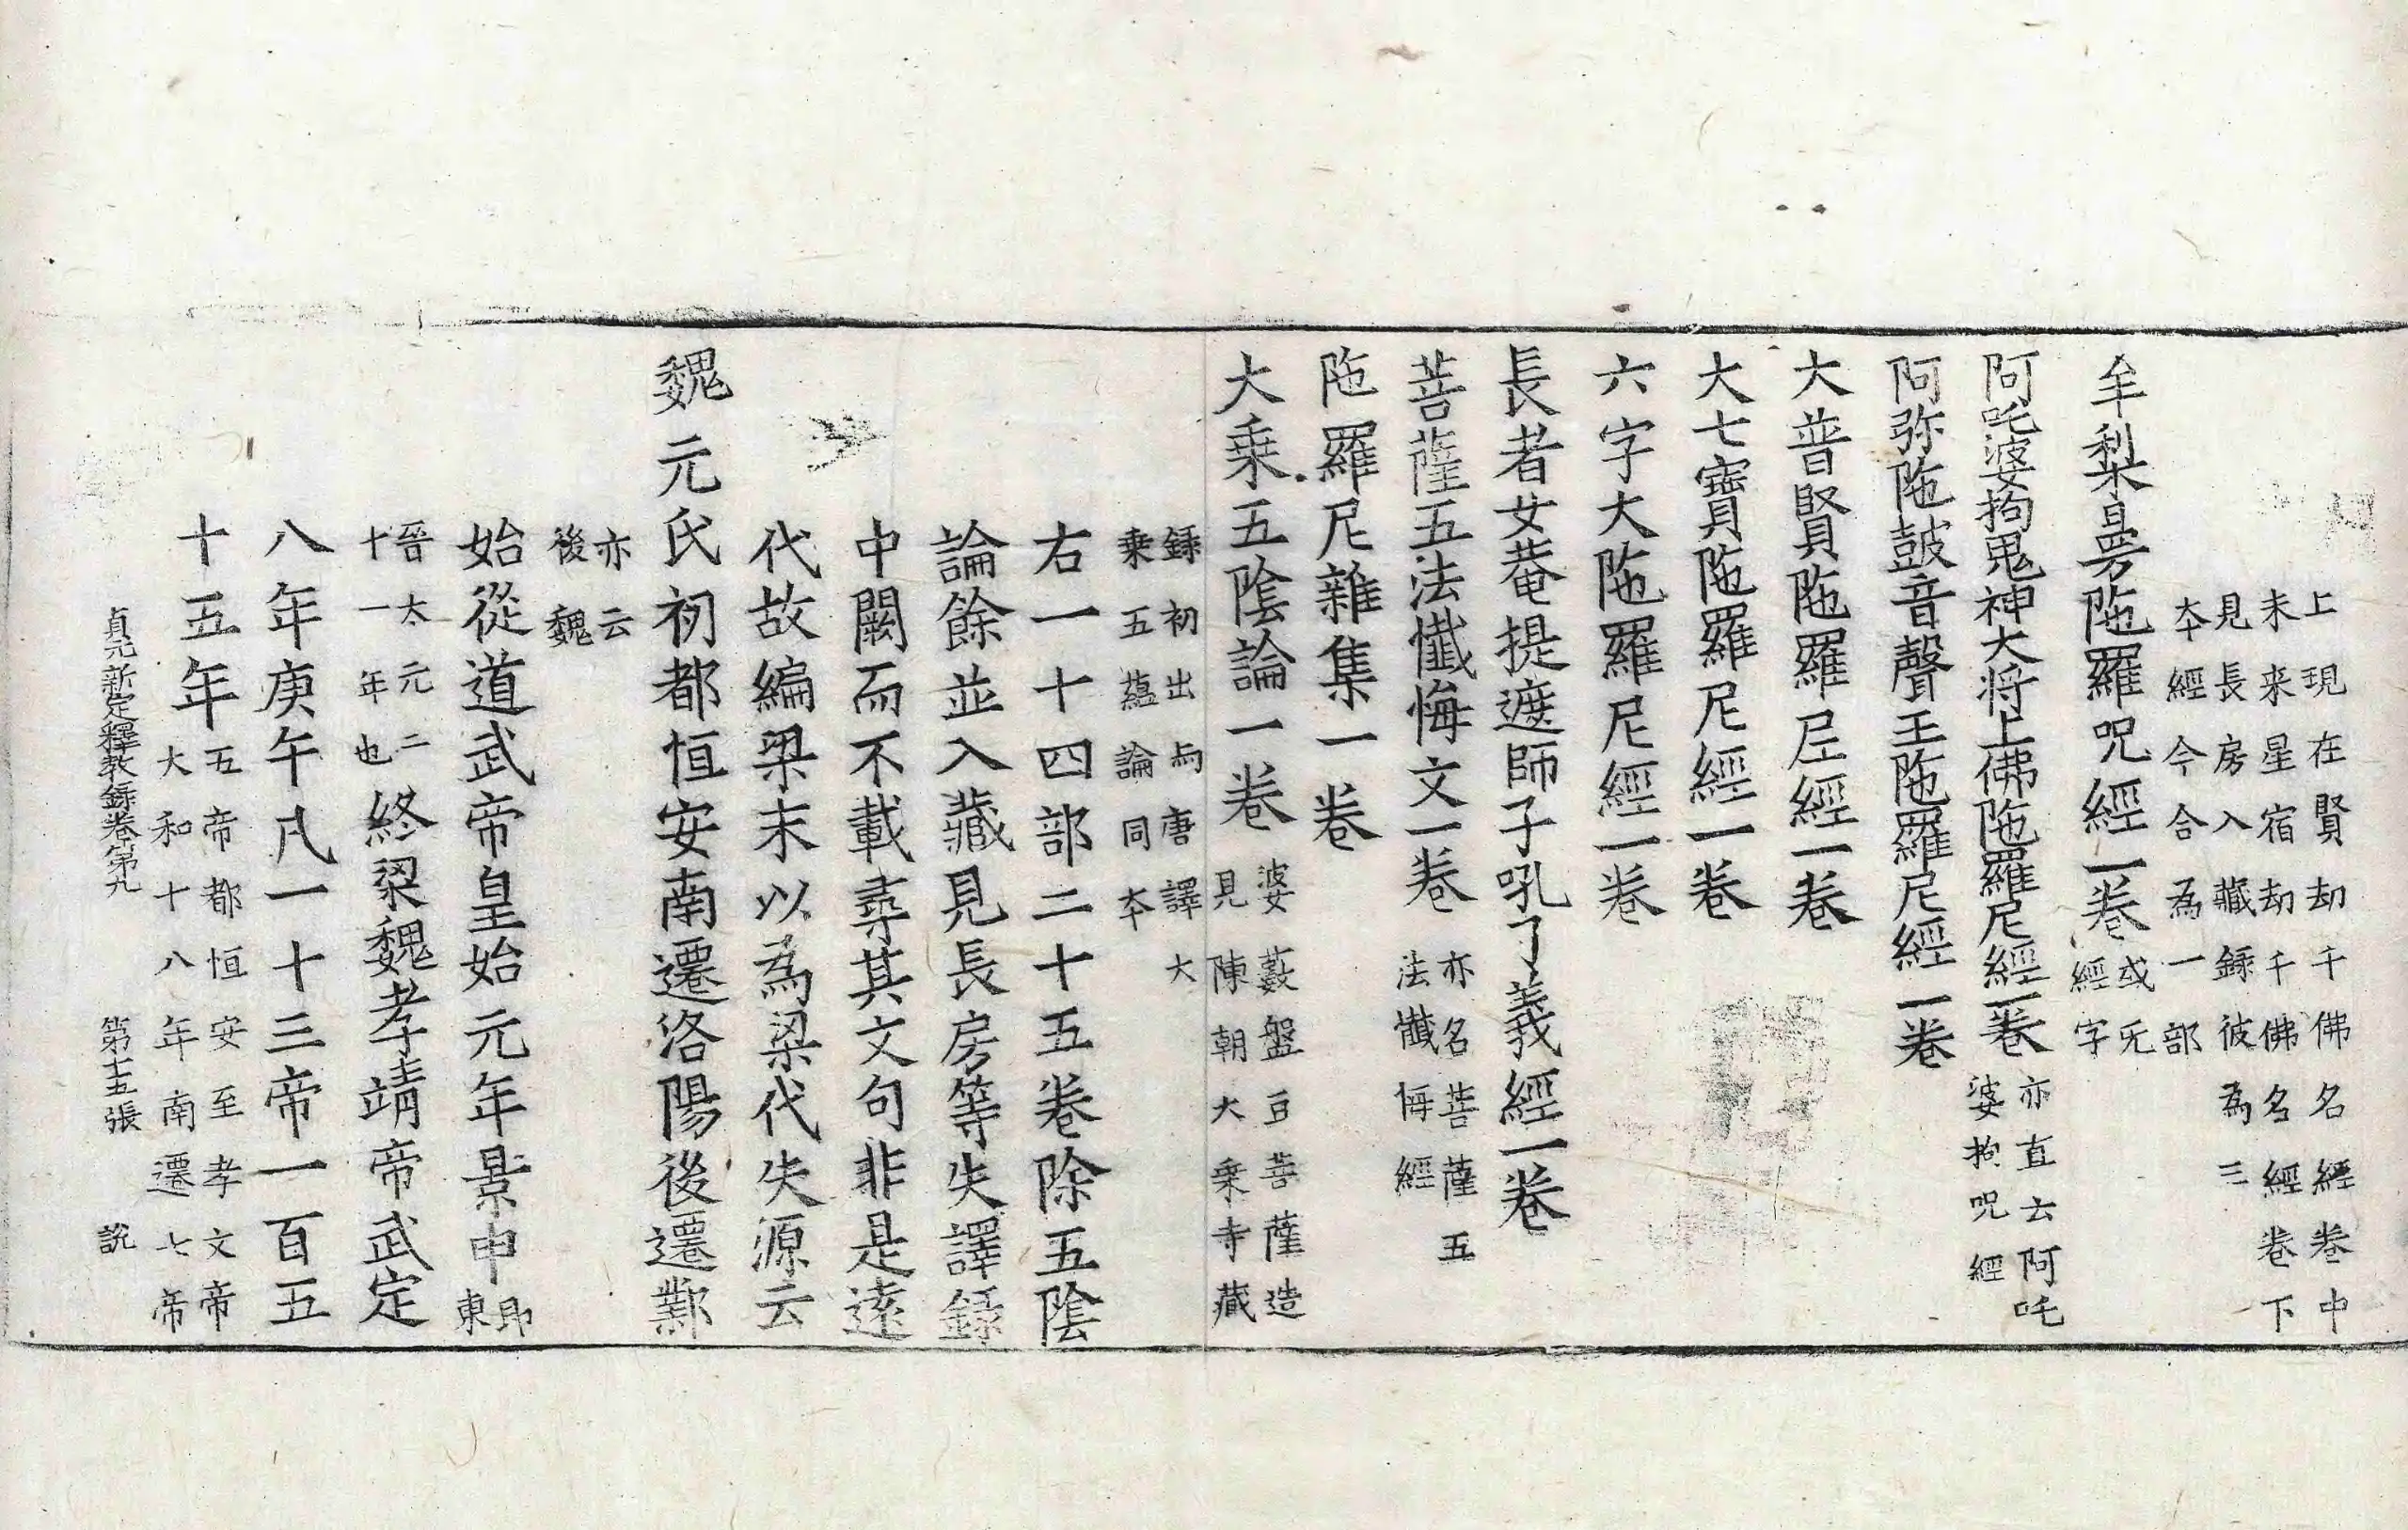 上現在賢劫千佛名經卷中
未来星宿劫千佛名經卷下
見長房入藏録彼為三
夲經今合為一部
牟梨曼陁羅呪經一卷
或无
經字
阿吒婆拘鬼神大将上佛陁羅尼經一卷
亦直云阿吒
婆拘呪經
阿弥陁皷音聲王陁羅尼經一卷
大普賢陁羅尼經一卷
大七寶陁羅尼經一卷
六字大陁羅尼經一卷
長者女菴提遮師子吼了義經一卷
菩薩五法懺悔文一卷
亦名菩薩五
法懺悔經
陁羅尼雜集一卷
大乗五陰論一卷
婆藪盤豆菩薩造
見陳朝大乗寺藏
録初出与唐譯大
乗五藴論同夲
右一十四部二十五卷除五陰
論餘並入藏見長房等失譯録
中闕而不載尋其文句非是遠
代故編梁末以為梁代失源云
魏元氏初都恒安南遷洛陽後遷鄴
亦云
後魏
始從道武帝皇始元年景申
即
東
晉太元二
十一年也
終梁魏孝靖帝武定
八年庚午凡一十三帝一百五
十五年
五帝都恒安至孝文帝
大和十八年南遷七帝
貞元新定釋教録卷第九 第十五張 説